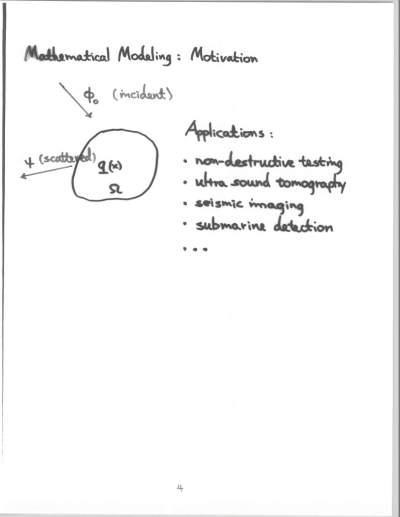 Mathematical Modeling : Motivation
ϕ₀ (incident)
ψ (scattered)
q(x)
Ω
Applications :
• non-destructive testing
• ultra sound tomography
• seismic imaging
• submarine detection
• • •
4